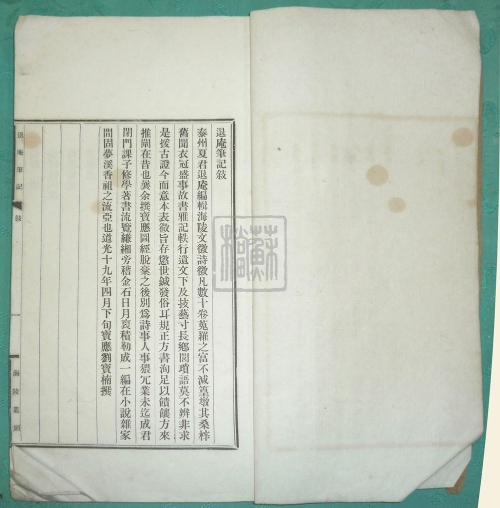 退庵筆記敍
泰州夏君退庵編輯海陵文徵詩徵凡數十卷蒐羅之富不減篁墩其桑梓
舊聞衣冠盛事故書雅記軼行遺文下及技藝寸長鄉閭瑣語莫不辨非求
是援古證今而意本表微旨存慾世鍼發俗耳規正方書洵足以饋餽方來
推闡在昔也囊余撰寶應圖經脫稾之後別為詩事人事猥冗業未迄成君
閉門課子修學著書流覽緗緗旁稽金石日月裒積勒成一編在小說雜家
間固夢溪香祖之流亞也道光十九年四月下旬寶應劉寶楠撰
退庵筆記
敍
一
海陵叢刻